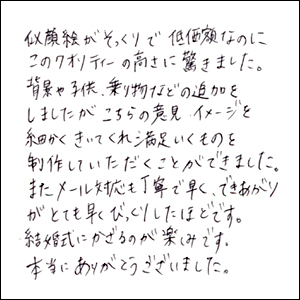 似顔絵がそっくりで低価額なのに
このクオリティーの高さに驚きました。
背景や子供、乗り物などの追加を
しましたがこちらの意見・イメージを
細かくきいてくれ満足いくものを
制作していただくことができました。
またメール対応も丁寧で早く、できあがり
がとても早くびっくりしたほどです。
結婚式にかざるのが楽しみです。
本当にありがとうございました。